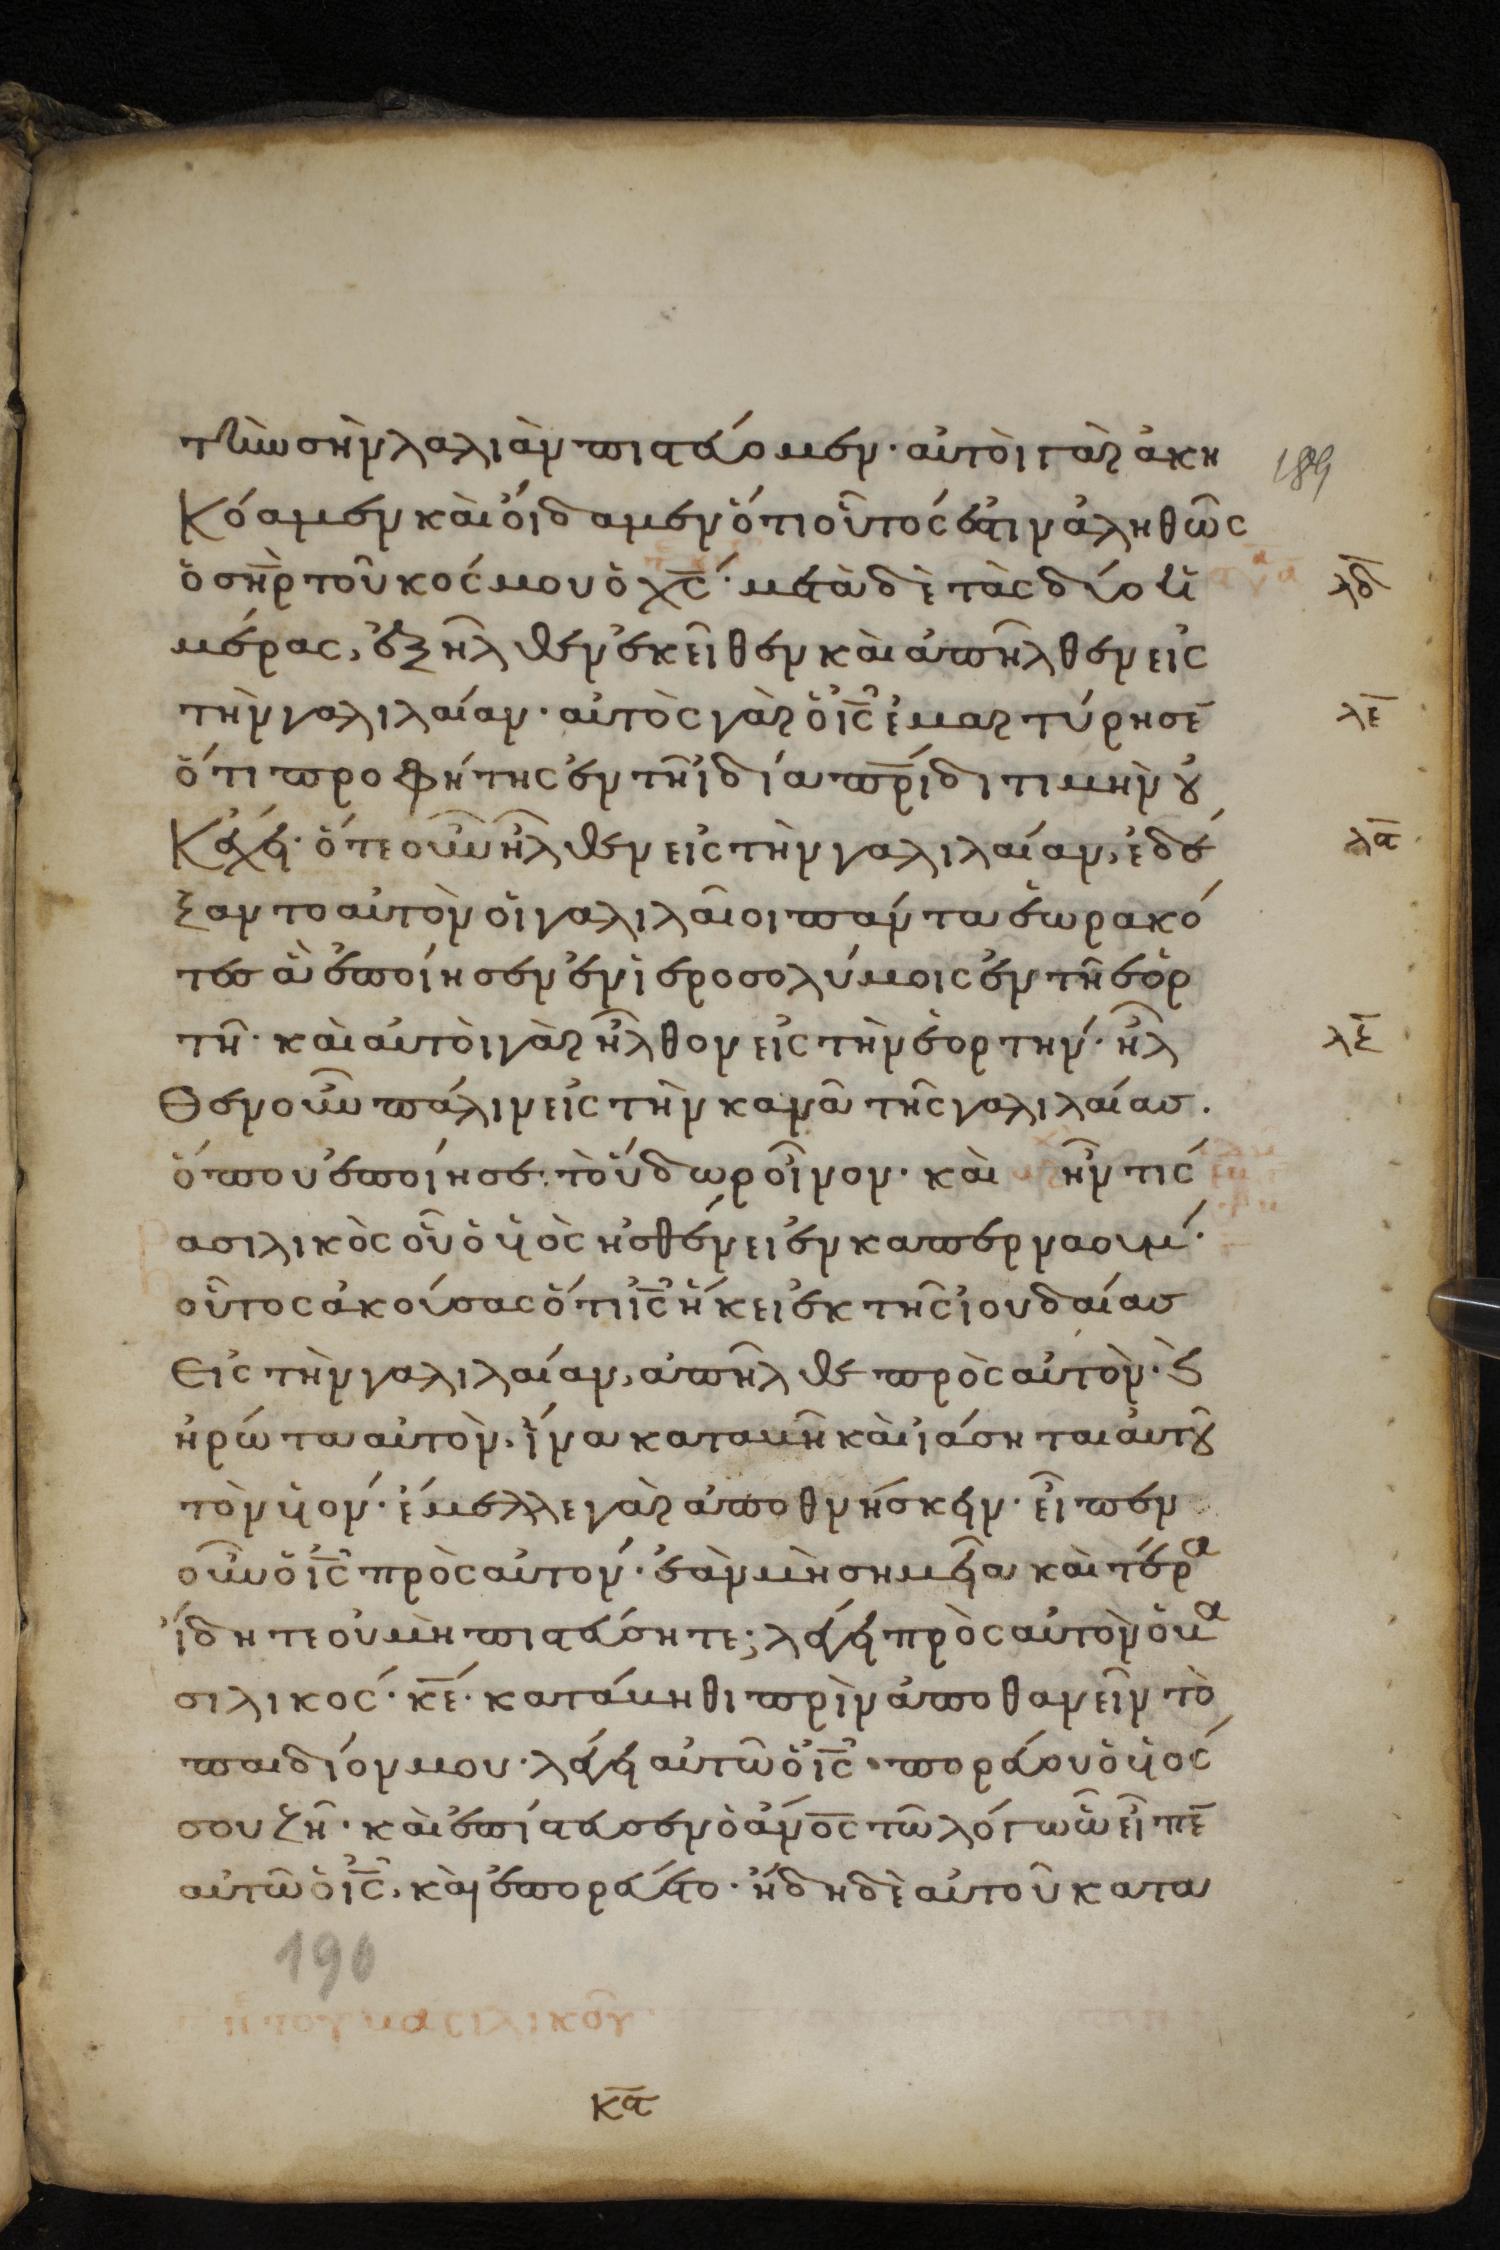 τὴν σὴν λαλιὰν πιστεύομεν· αὐτοὶ γὰρ ἀκη
189
κόαμεν καὶ οἴδαμεν ὅτι οὗτός ἐστιν ἀληθῶς
ὁ σ̅η̅ρ̅ τοῦ κόσμου ὁ χ̅ς̅· μετὰ δὲ τὰς δύο ἡ
λδ
μέρας, ἐξῆλθεν ἐκεῖθεν καὶ ἀπῆλθεν εἰς
τὴν γαλιλαίαν· αὐτὸς γὰρ ὁ ι̅ς̅ ἐμαρτύρησε̅
λε
ὅτι προφήτης ἐν τῇ ἰδία π̅ρ̅ίδι τιμὴν οὐ
κ ἔχει· ὅτε οὖν ἦλθεν εἰς τὴν γαλιλαίαν, ἐδέ
ξαντο αὐτὸν οἱ γαλιλαῖοι πάντα ἑωρακό
τες ἃ ἐποίησεν ἐν ἱεροσολύμοις ἐν τῇ ἑορ
τῇ· καὶ αὐτοὶ γὰρ ἦλθον εἰς τὴν ἑορτήν· ἦλ
θεν οὖν πάλιν εἰς τὴν κανᾶ τῆς γαλιλαίας.
ὅπου ἐποίησε τὸ ὕδωρ οἶνον· καὶ ἦν τίς
ασιλικὸς οὗ ὁ υἱὸς ἠσθένει ἐν καπερναούμ·
οὗτος ἀκούσας ὅτι ι̅ς̅ ἥκει ἐκ τῆς ἰουδαίας
εἰς τὴν γαλιλαίαν, ἀπῆλθε πρὸς αὐτὸν· ϗ
ἠρώτα αὐτὸν, ἵνα καταβῇ καὶ ἰάσηται αὐτοῦ
τὸν υἱόν· ἔμελλε γὰρ ἀποθνήσκειν· εἶπεν
οὖν ὁ ι̅ς̅ πρὸς αὐτόν· ἐὰν μὴ σημεῖα καὶ τέρα
ἴδητε οὐ μὴ πιστεύσητε; λέγει πρὸς αὐτὸν ὁ βα
σιλικός· κ̅ε̅· κατάβηθι πρὶν ἀποθανεῖν τὸ
παιδίον μου· λέγει αὐτῶ ὁ ι̅ς̅· πορεύου ὁ υἱός
σου ζῇ· καὶ ἐπίστευσεν ὁ α̅ν̅ο̅ς̅ τῶ λόγω ὧ εἶπε̅
αὐτῶ ὁ ι̅ς̅, καὶ ἐπορεύετο· ἤδη δὲ αὐτοῦ κατα
190
τοῦ βασιλικοῦ